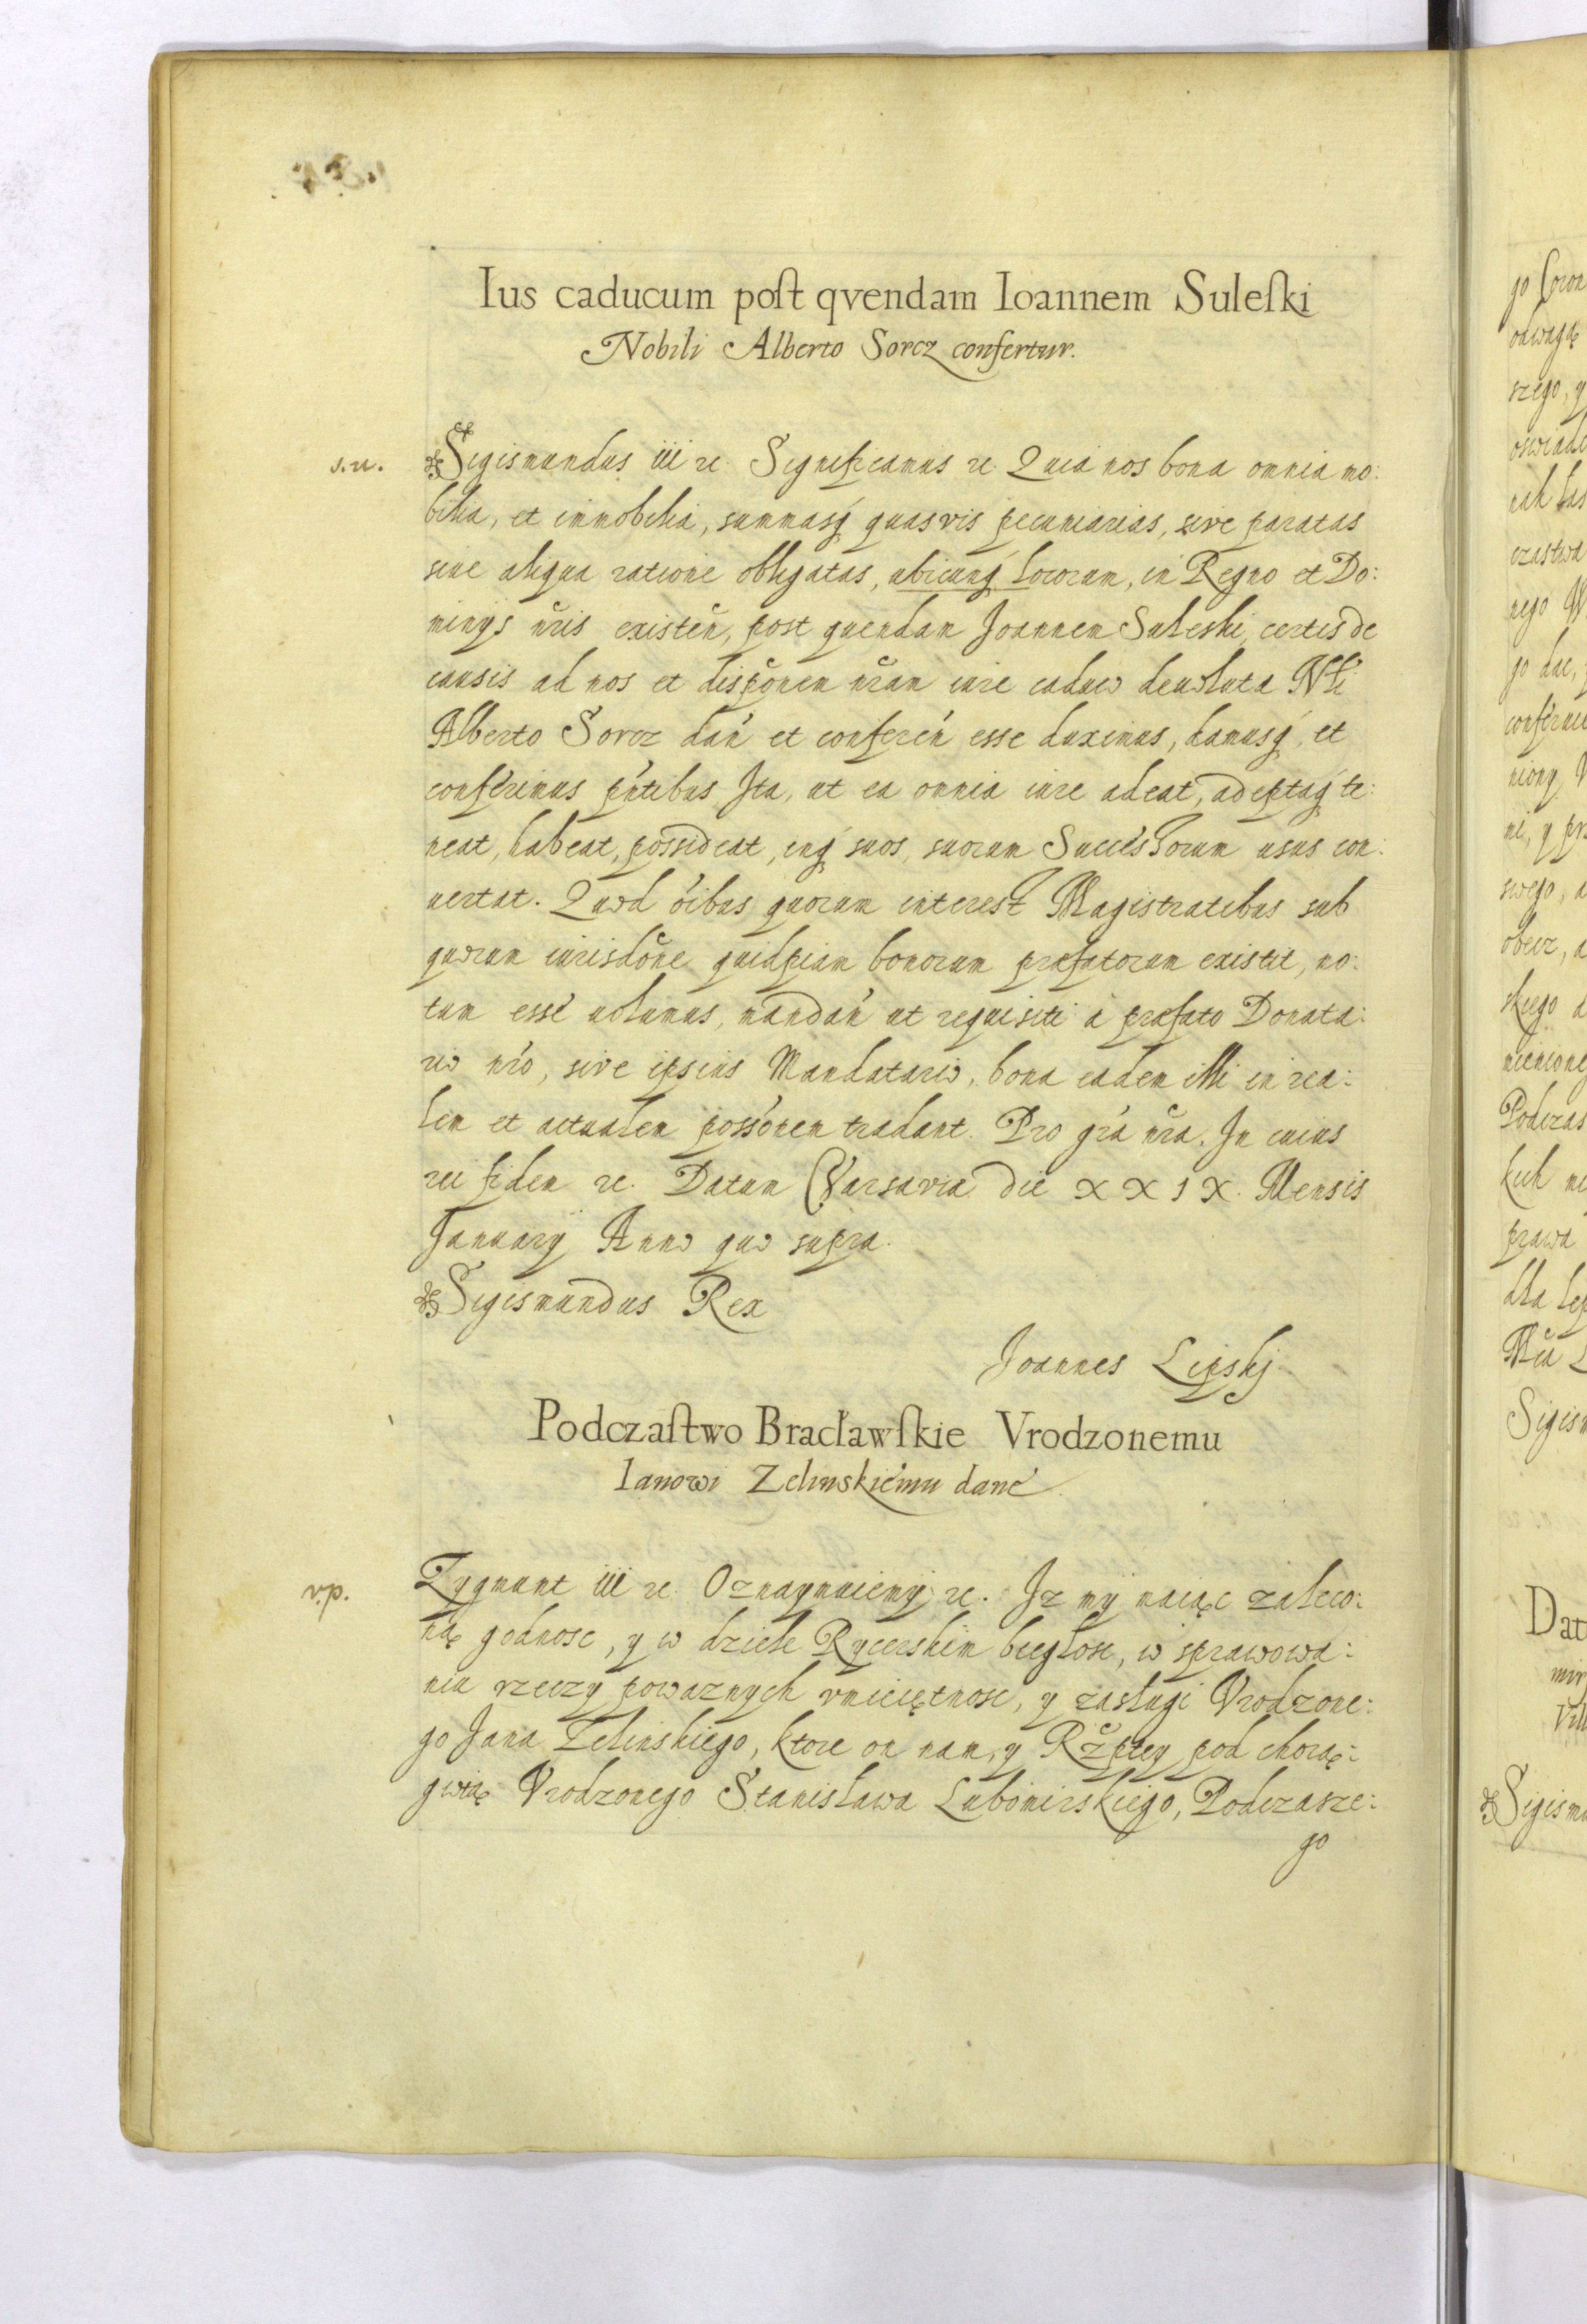 Ius caducum poſt qvendam Ioannem Suleſki
Nobili Alberto Sorcz confertur.
s.n.
Sigismundus iii rc. Significamus rc. Quia nos bona omnia mo:
bilia, et immobilia, summasq́ quasvis pecuniarias, sive paratas
siue aliqua ratione obligatas, ubicunq́ Locorum, in Regno et Do:
minijs nr̃is existeñ, post quendam Joannem Suleski, certis de
causis ad nos et disp̃onem nr̃am iure caduco deuoluta Nli
Alberto Sorcz dań et conferéń esse duximus, damusq́, et
conferimus pńtibus Ita, ut ea omnia iure adeat, adeptaq́ te:
neat, habeat, possideat, inq́ suos, suorum Successorum usus con:
uertat. Quod óibus quorum interest Magistratibus sub
quorum iurisdõne quidpiam bonorum præfatorum existit, no:
tum esse uolumus, mandań ut requisiti à præfato Donata:
rio nŕo, sive ipsius Mandatario, bona eadem illi in rea:
lem et actualem possónem tradant. Pro grá nr̃a. In cuius
rei fidem rc. Datum Varsaviæ die XXIX. Mensis
January Anno quo supra.
Sigismundus Rex
Joannes Lipskj
Podczaſtwo Bracławſkie Vrodzonemu
Ianowi Zelinskiému dané
v.p.
Zygmunt iii rc. Oznaymuiemy rc. Iz my maiąc zaleco:
ną godnosc, y w dziele Rycerskim biegłosc, w sprawowa:
niu rzeczy powaznych vmieiętnosc, y zasługi Vrodzone:
go Jana Zelinskiego, ktore on nam, y Rz̃ptey pod chorą:
gwią Vrodzonego Stanisława Lubomirskiego, Podczasze:
go